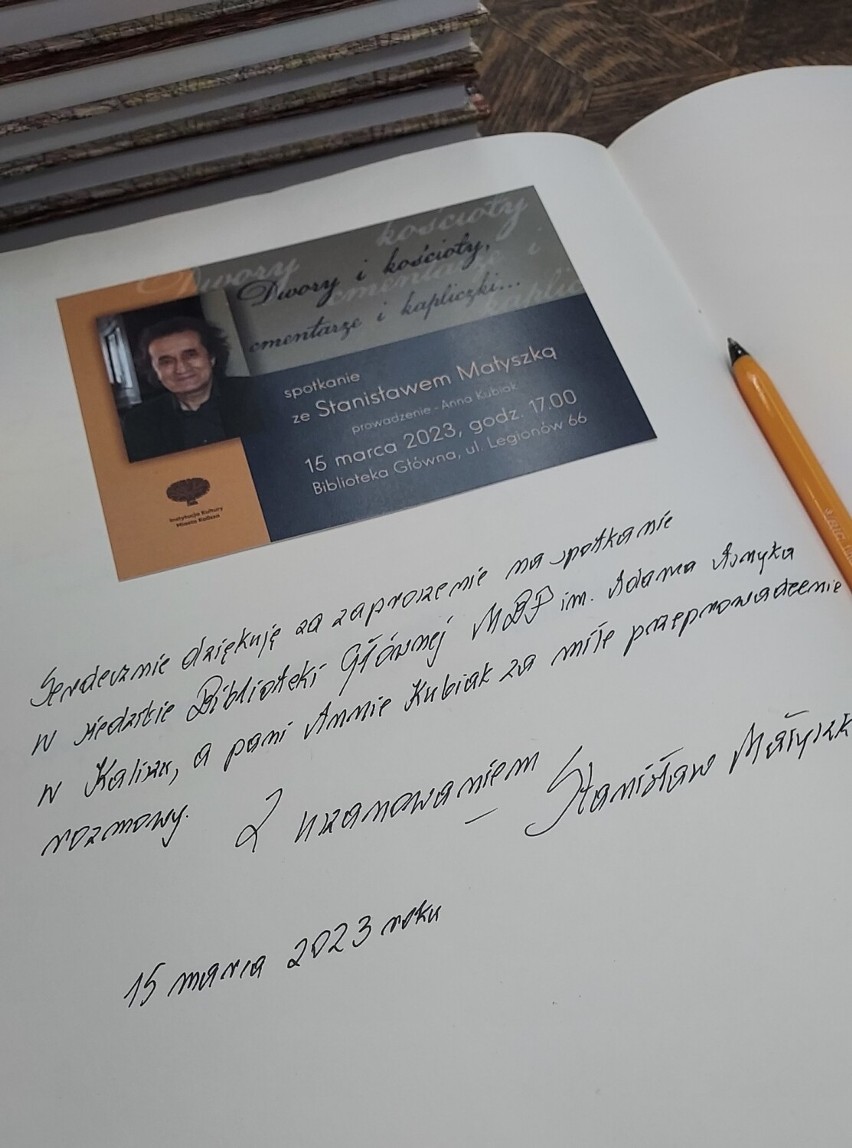 Dwory i kościoły,
cmentarze i kapliczki...
spotkanie
ze Stanisławem Małyszką
prowadzenie - Anna Kubiak
15 marca 2023, godz. 17.00
Biblioteka Główna, ul. Legionów 66
Instytucja Kultury
Miasta Kalisza
Serdecznie dziękuję za zaproszenie na spotkanie
w siedzibie Biblioteki Głównej MBP im. Adama Asnyka
w Kaliszu, a pani Annie Kubiak za miłe przeprowadzenie
rozmowy. Z uszanowaniem – Stanisław Małyszk
15 marca 2023 roku